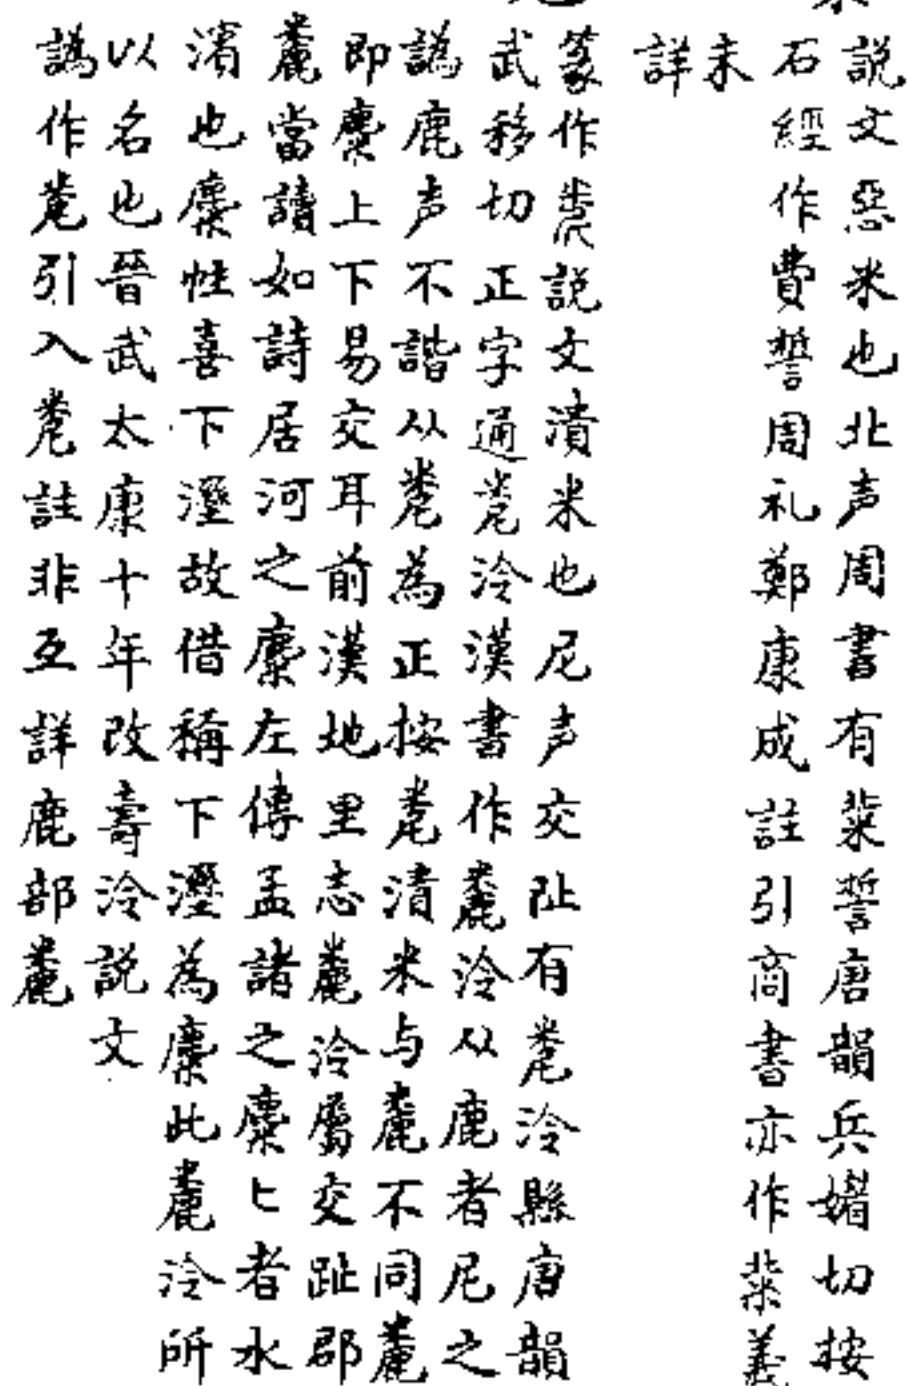 説文惡米也北声周書有粊誓唐韻兵媚切按
石經作費誓周礼鄭康成註引商書亦作粊義
未
詳
篆作説文漬米也尼声交阯有冞泠縣唐韻
武移切正字通泠漢書作麊泠从鹿者尼之
譌鹿声不諧从為正按漬米与麊不同麊
即麋上下易交耳前漢地里志麊泠屬交趾郡
麊當讀如詩居河之麋左傳孟諸之麋〻者水
濱也麋性喜下溼故借稱下溼為麋此麊泠所
以名也晉武太康十年改壽泠説文
譌作引入註非互詳鹿部麊